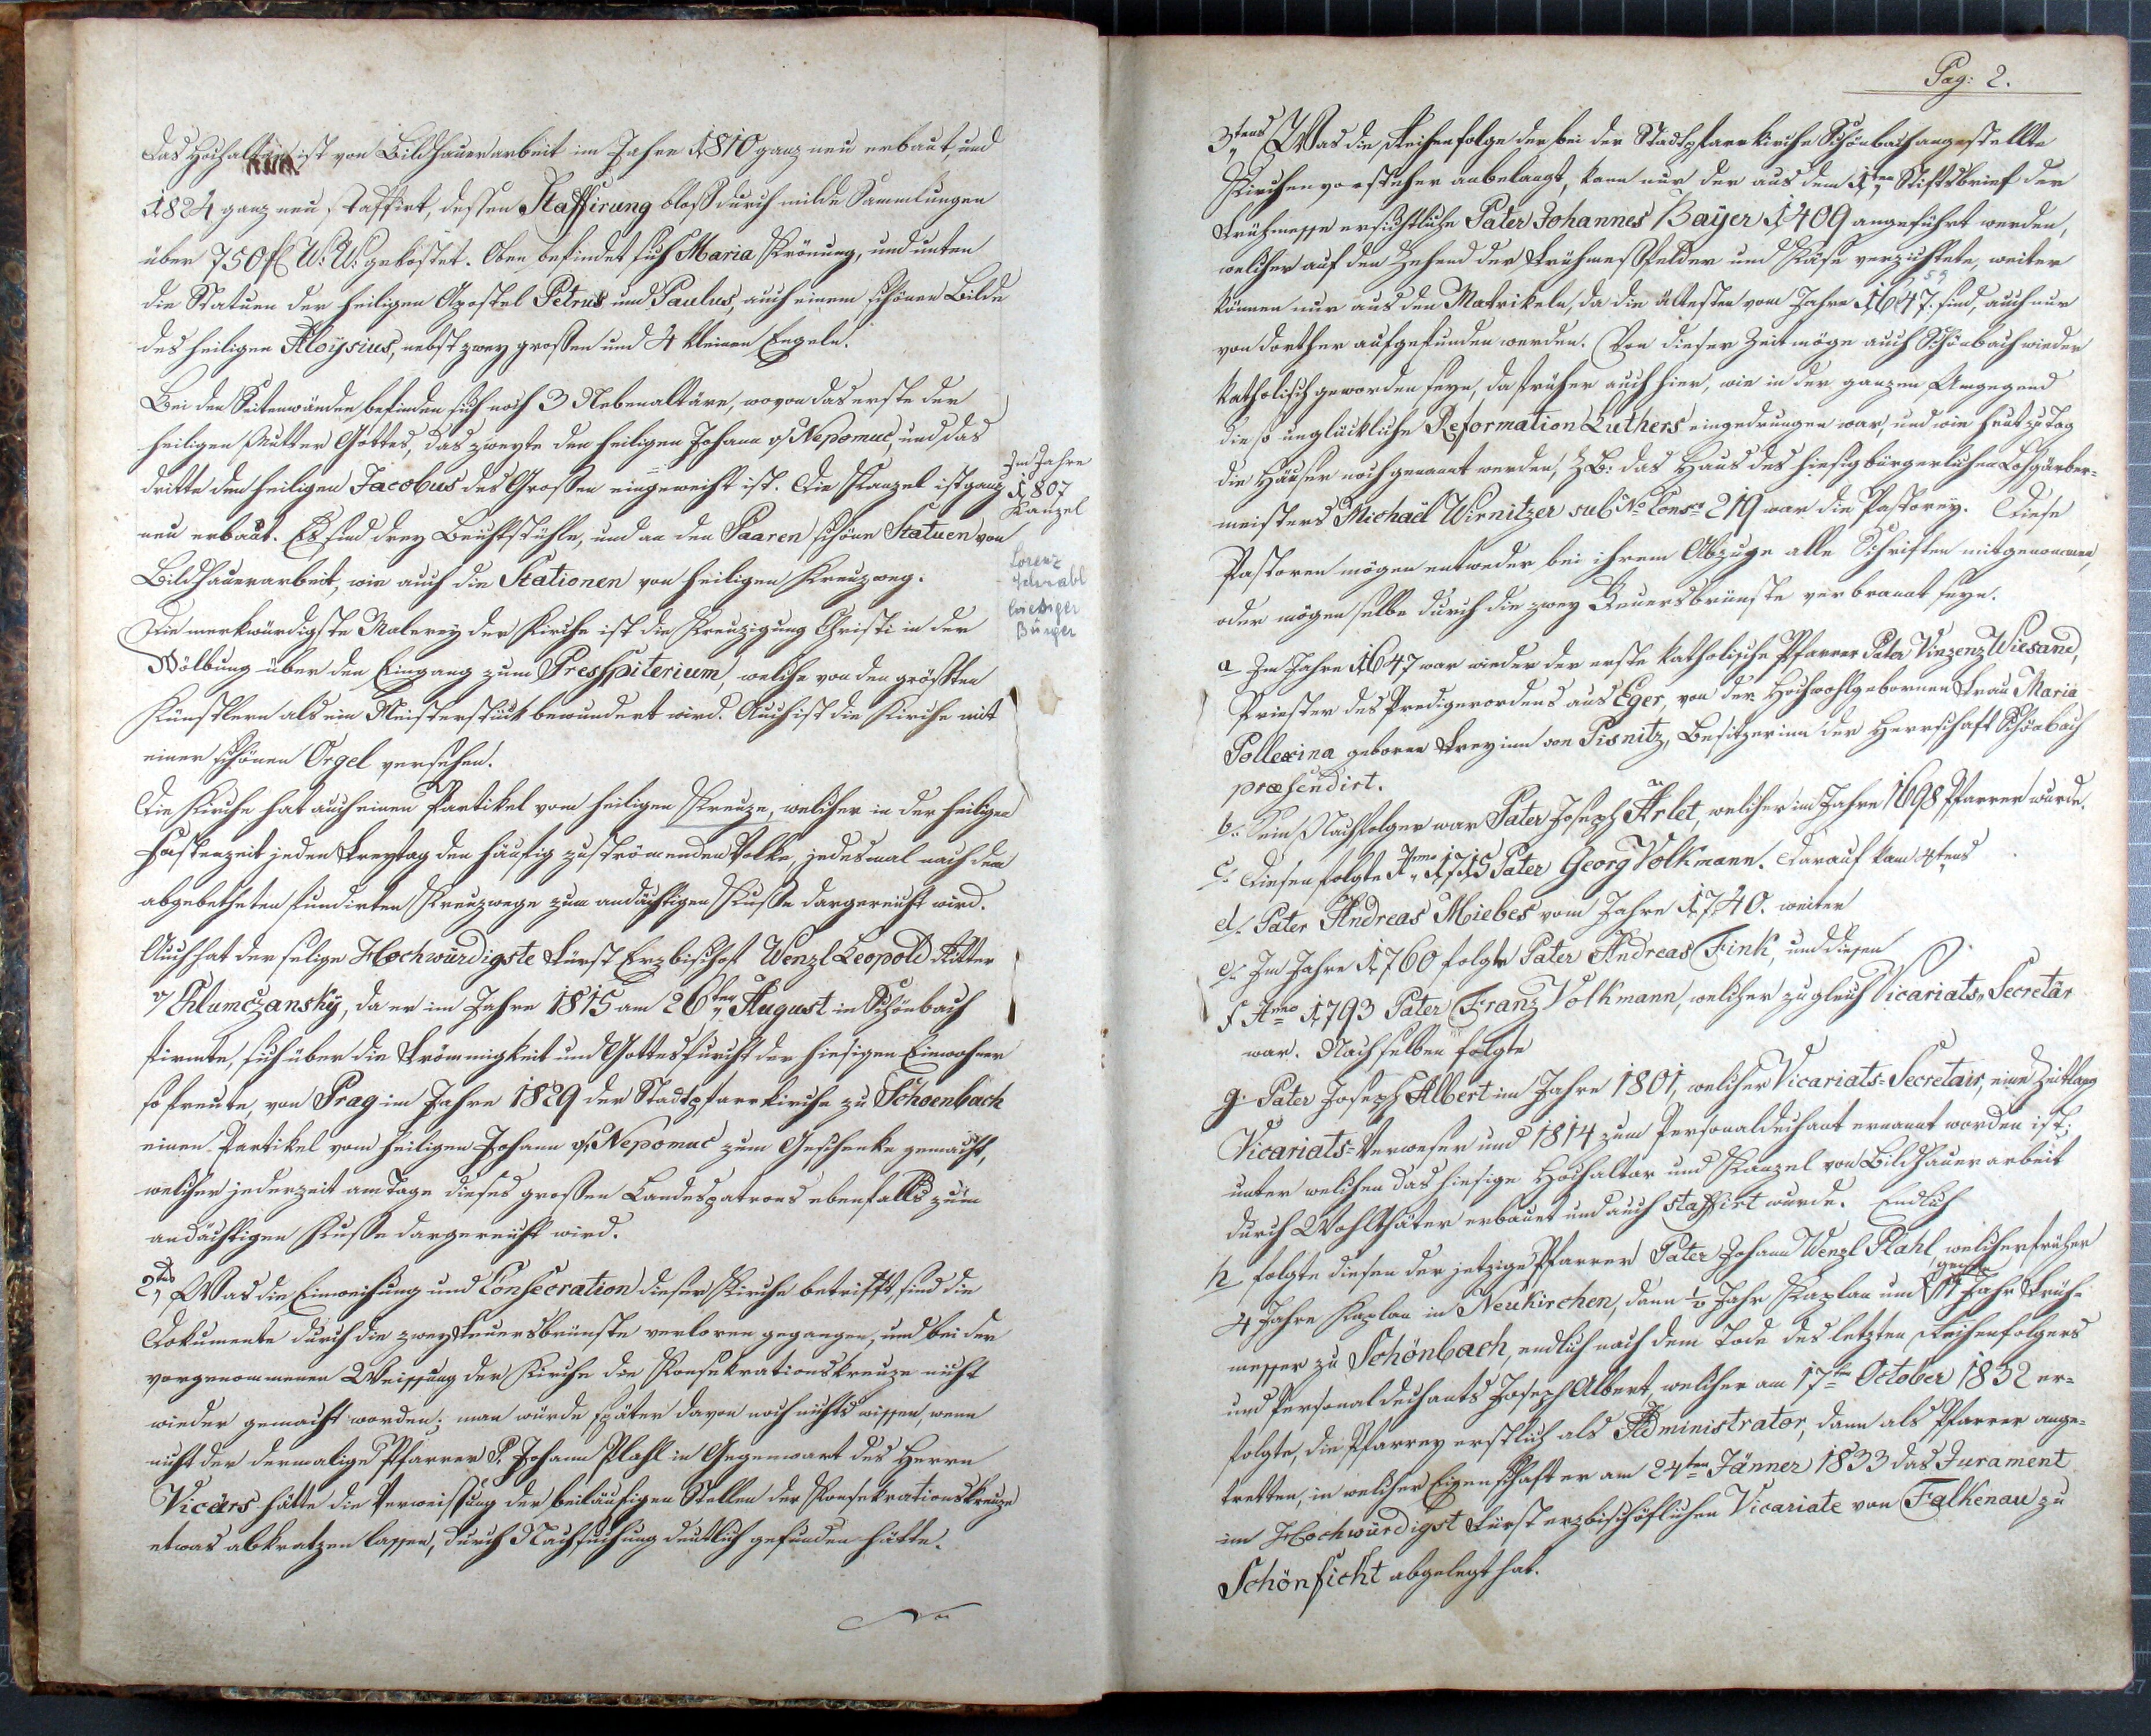 Das Hochaltar ist von Bildhauerarbeit im Jahre 1810 ganz neu erbaut, und
1824 ganz neu staffirt, dessen Staffirung bloß durch milde Sammlungen
über 750 fl W: W: gekostet. Oben befindet sich Maria Krönung, und unten
die Statuen der heiligen Apostel Petrus und Paulus, auch einem schönen Bilde
des heiligen Aloysius, nebst zwey großen und 4 kleinen Engeln.
Bei den Seitenwänden befinden sich noch 3 Nebenaltäre, wovon das erste der
heiligen Mutter Gottes, das zweyte den heiligen Johann v Nepomuc, und das
dritte dem heiligen Jacobus des Großen eingeweiht ist. Die Kanzel ist ganz
neu erbaut. Es sind drey Beichtstühle, und an den Paaren schöne Statuen von
Bildhauerarbeit, wie auch die Stationen von heiligen Kreuzweg.
Im Jahre
1807
Kanzel
Lorenz
Schnabl
hiesiger
Bürger
Die merkwürdigste Malerey der Kirche ist die Kreuzigung Christi in der
Wölbung über den Eingang zum Presspiterium, welche von den größten
Künstlern als ein Meisterstück bewundert wird. Auch ist die Kirche mit
einer schönen Orgel versehen.
Die Kirche hat auch einen Partikel vom heiligen Kreuze, welcher in der heiligen
Fastenzeit jeden Freytag den häufig zuströmenden Volke, jedesmal nach dem
abgebetheten fundirten Kreuzwege zum andächtigen Kusse dargereicht wird.
Auch hat der selige Hochwürdigste Fürst Erzbischof Wenzl Leopold Ritter
v Chlumczansky, da er im Jahre 1815 am 26ten August in Schönbach
firmte, sich über die Frömmigkeit und Gottesfurcht der hiesigen Einwohner
so freute, von Prag im Jahre 1829 der Stadtpfarrkirche zu Schoenbach
einen Partikel vom heiligen Johann v. Nepomuc zum Geschenke gemacht,
welcher jederzeit am Tage dieses großen Landespatrons ebenfalls zum
andächtigen Kusse dargereicht wird.
2tens Was die Einweihung und Consecration dieser Kirche betrifft, sind die
Dokumente durch die zwey Feuersbrünste verloren gegangen, und bei der
vorgenommenen Weissung der Kirche die Konsekrationskreuze nicht
wieder gemacht worden; man würde später davon noch nichts wissen, wenn
nicht der dermalige Pfarrer P. Johann Plahl in Gegenwart des Herrn
Vicärs hätte die Verweissung der beiläufigen Stellen der Konsekrationskreuze
etwas abkratzen lassen, durch Nachsuchung deutlich gefunden hätte.
Pag: 2.
3tens Was die Reihenfolge der bei der Stadtpfarrkirche Schönbach angestellte
Kirchenvorsteher anbelangt, kann nur der aus dem 1ten Stiftsbrief der
Frühmesse ersichtliche Pater Johannes Bayer 1409 angeführt werden,
welcher auf den Zehend der Frühmeßfelder und Käse verzichtete, weiter
können nur aus den Matrikeln, da die ältesten vom Jahre 1647 sind, auch nur
von dorther aufgefunden werden. Von dieser Zeit möge auch Schönbach wieder
katholisch geworden seyn, da früher auch hier, wie in der ganzen Umgegend
dieß unglückliche Reformation Luthers eingedrungen war, und wie heut zu Tag
die Häuser noch genannt werden, z B: das Haus des hiesig bürgerlichen Lohgärber=
meisters Michäel Wirnitzer sub No Cons: 219 war die Pastorey. Diese
Pastoren mögen entweder bei ihrem Abzuge alle Schriften mitgenommen,
oder mögen selbe durch die zwey Feuersbrünste verbrannt seyn.
a Im Jahre 1647 war wieder der erste katholische Pfarrer Pater Vinzenz Wiesand,
Priester des Predigerordens aus Eger, von der Hochwohlgebornen Frau Maria
Pollexina geborne Freyinn von Pisnitz, Besitzerinn der Herrschaft Schönbach
præsendirt.
b. Sein Nachfolger war Pater Joseph Arlet, welcher im Jahre 1698 Pfarrer wurde.
c. Diesen folgte Anno 1715 Pater Georg Volkmann. Darauf kam 4tens
d. Pater Andreas Miebes vom Jahre 1740. weiter
e. Im Jahre 1760 folgte Pater Andreas Fink, und diesen
f Anno 1793 Pater Franz Volkmann, welcher zugleich Vicariats-Secretär
war. Nach selben folgte
g. Pater Joseph Albert im Jahre 1801, welcher Vicariats=Secretair, eine Zeitlang
Vicariats=Verweser und 1814 zum Personaldechant ernannt worden ist;
unter welchen das hiesige Hochaltar und Kanzel von Bildhauerarbeit
durch Wohlthäter erbauet und auch staffirt wurde. Endlich
h folgte diesen der jetzige Pfarrer Pater Johann Wenzl Plahl, welcher früher
4 Jahre Kaplan in Neukirchen, dann ½ Jahr Kaplan und Jahr Früh=
messer zu Schönbach, endlich nach dem Tode des letzten Reihenfolgers
und Personaldechants Joseph Albert, welcher am 17ten October 1832 er=
folgte, die Pfarrey erstlich als Administrator, dann als Pfarrer ange=
tretten, in welcher Eigenschaft er am 24ten Jänner 1833 das Jurament
im Hochwürdigst Fürst erzbischöflichen Vicariate von Falkenau zu
Schönficht abgelegt hat.